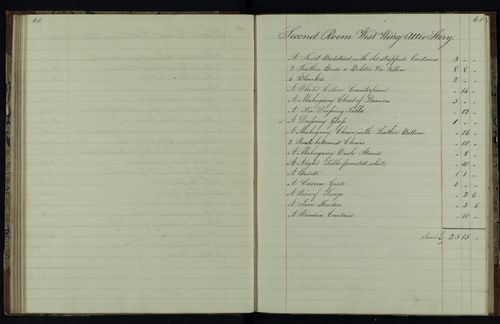 60
61
Second Room West Wing Attic Story
A Tent Bedstead with old stripped Curtains 3 - -
2 Feather Beds a Bolster & a Pillow 8 8 -
4 Blankets 2 - -
A White Cotton Counterpane - 14 -
A Mahogany Chest of Drawers 3 - -
A Fir Dressing Table - 12 -
A Dressing Glass
A Mahogany Chair with Leather Bottom - 16 -
2 Rush bottomed Chairs - 10 -
A Mahogany Wash Stand - 8 -
A Night Table painted white - 10 -
A Bidette 1 1 -
A Carron Grate 1 - -
A Pair of Tongs - 2 6
A Fender - 3 6
A Window Curtain - 10 -
£ 25 15 -